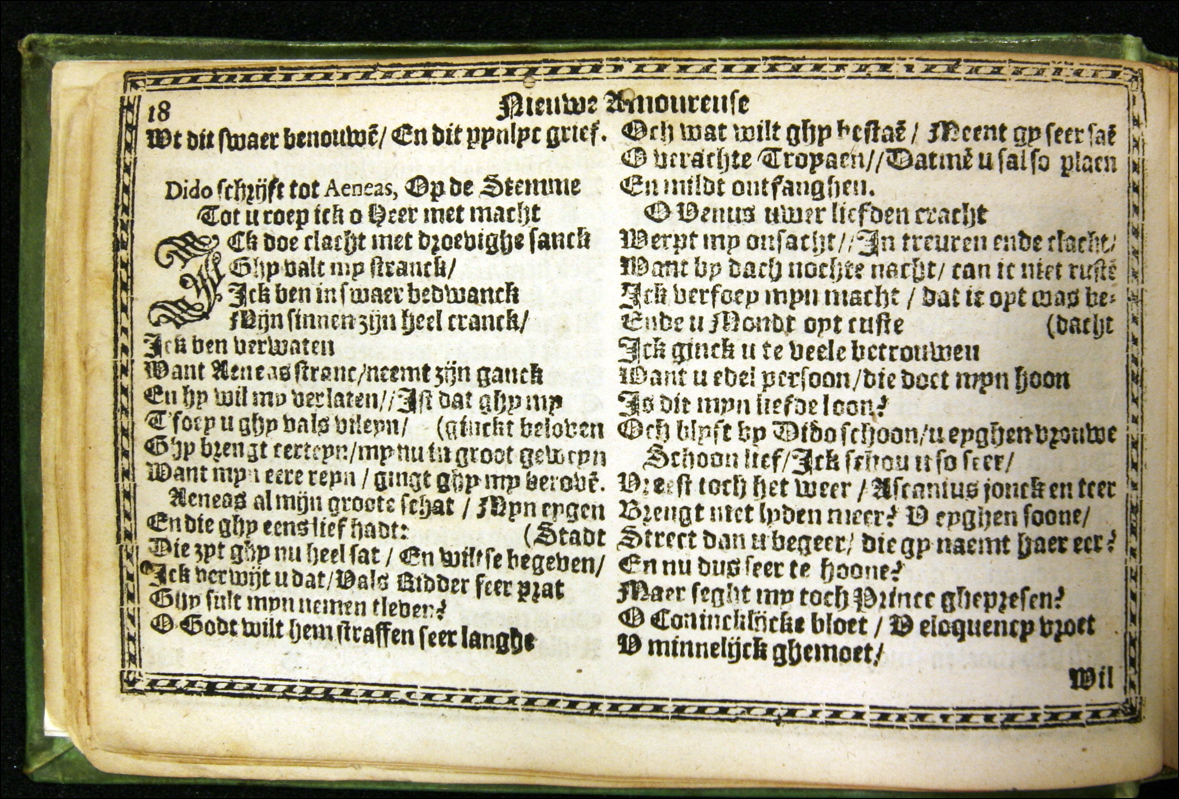 18
Nieuwe Amoureuse
Wt dit swaer benouwē/ En dit pynlyc grief.
Dido schrijft tot Aeneas, Op de Stemme
Tot u roep ick o Heer met macht
ICk doe clacht met droevighe sanck
Ghy valt my stranck/
Ick ben in swaer bedwanck
Mijn sinnen zijn heel cranck/
Ick ben verwaten
Want Aeneas stranc/neemt zijn ganck
En hy wil my verlaten//Ist dat ghy my
T'foey u ghy vals vileyn/ (gluckt beloven
Ghy brengt certeyn/my nu in groot geweyn
Want myn eere reyn / gingt ghy my berovē.
Aeneas al mijn groote schat / Myn eygen
En die ghy eens lief hadt? (Stadt
Die zyt ghy nu heel sat / En wiltse begeven/
Ick verwijt u dat/Vals Ridder seer prat
Ghy sult myn nemen tleven?
O Godt wilt hem straffen seer langhe
Och wat wilt ghy bestaē / Meent gy seer saē
O verachte Tropaen//Datmē u sal so plaen
En mildt ontfanghen.
O Venus uwer liefden cracht
Werpt my onsacht//In treuren ende clacht/
Want by dach nochte nacht/ can ic niet rustē
Ick verfoey myn macht / dat ic opt was be-
Ende u Mondt oyt custe (dacht
Ick ginck u te veele betrouwen
Want u edel persoon/die doet myn hoon
Is dit myn liefde loon?
Och blyft by Dido schoon/u eyghen vrouwe
Schoon lief/Ick schou u so seer/
Vreest toch het weer / Ascanius jonck en teer
Brengt niet lyden meer? V eyghen soone/
Strect dan u begeer/ die gy naemt haer eer?
En nu dus seer te hoone?
Maer seght my toch Prince ghepresen?
O Conincklijcke bloet / V eloquency vroet
V minnelijck ghemoet/
Wil